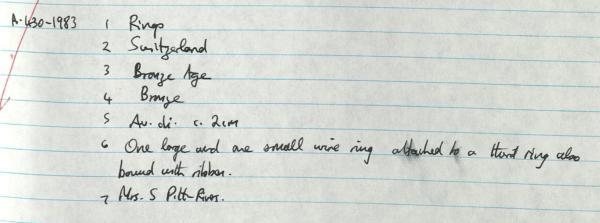 A.430-1983 1 Rings
2 Switzerland
3 Bronze Age
4 Bronze
5 Av. di. c. 2cm
6 One large and one small wire ring attached to a third ring also
bound with ribbon.
7 Mrs. S Pitt-Rivers.